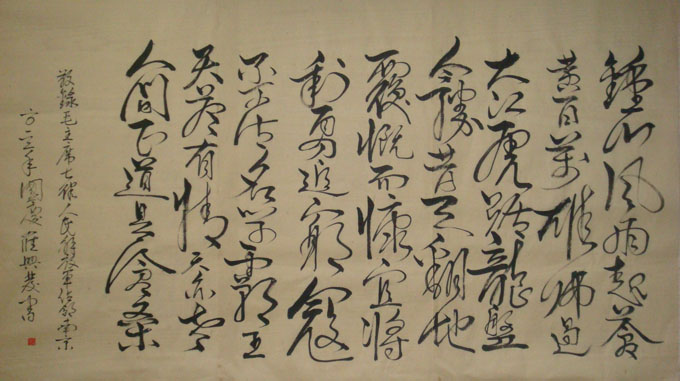 鍾山風雨起蒼
黃百萬雄師過
大江虎踞龍盤
今勝昔天翻地
覆慨而慷宜將
剩勇追窮寇
不可沽名学霸王
天若有情天亦老
人間正道是滄桑
敬錄毛主席七律人民解放軍佔領南京
年國慶